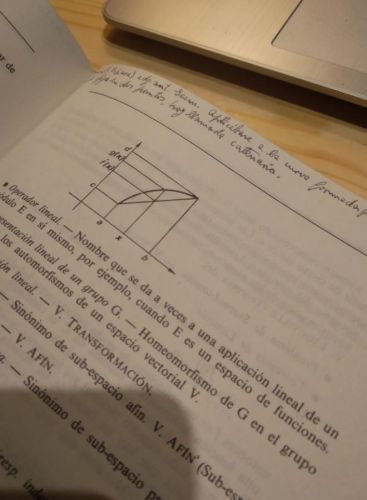 aplicábase a la curva formada p
dos puntos, hoy llamada catenaria.
ar de
d
g(x)
f(x)
c
a x b
• Operador lineal. — Nombre que se da a veces a una aplicación lineal de un
módulo E en sí mismo, por ejemplo, cuando E es un espacio de funciones.
esentación lineal de un grupo G. — Homeomorfismo de G en el grupo
los automorfismos de un espacio vectorial V.
ión lineal. — V. TRANSFORMACIÓN.
— Sinónimo de sub-espacio afín. V. AFÍN (Sub-es
— V. AFÍN.
— Sinónimo de sub-espacio
resp. inde